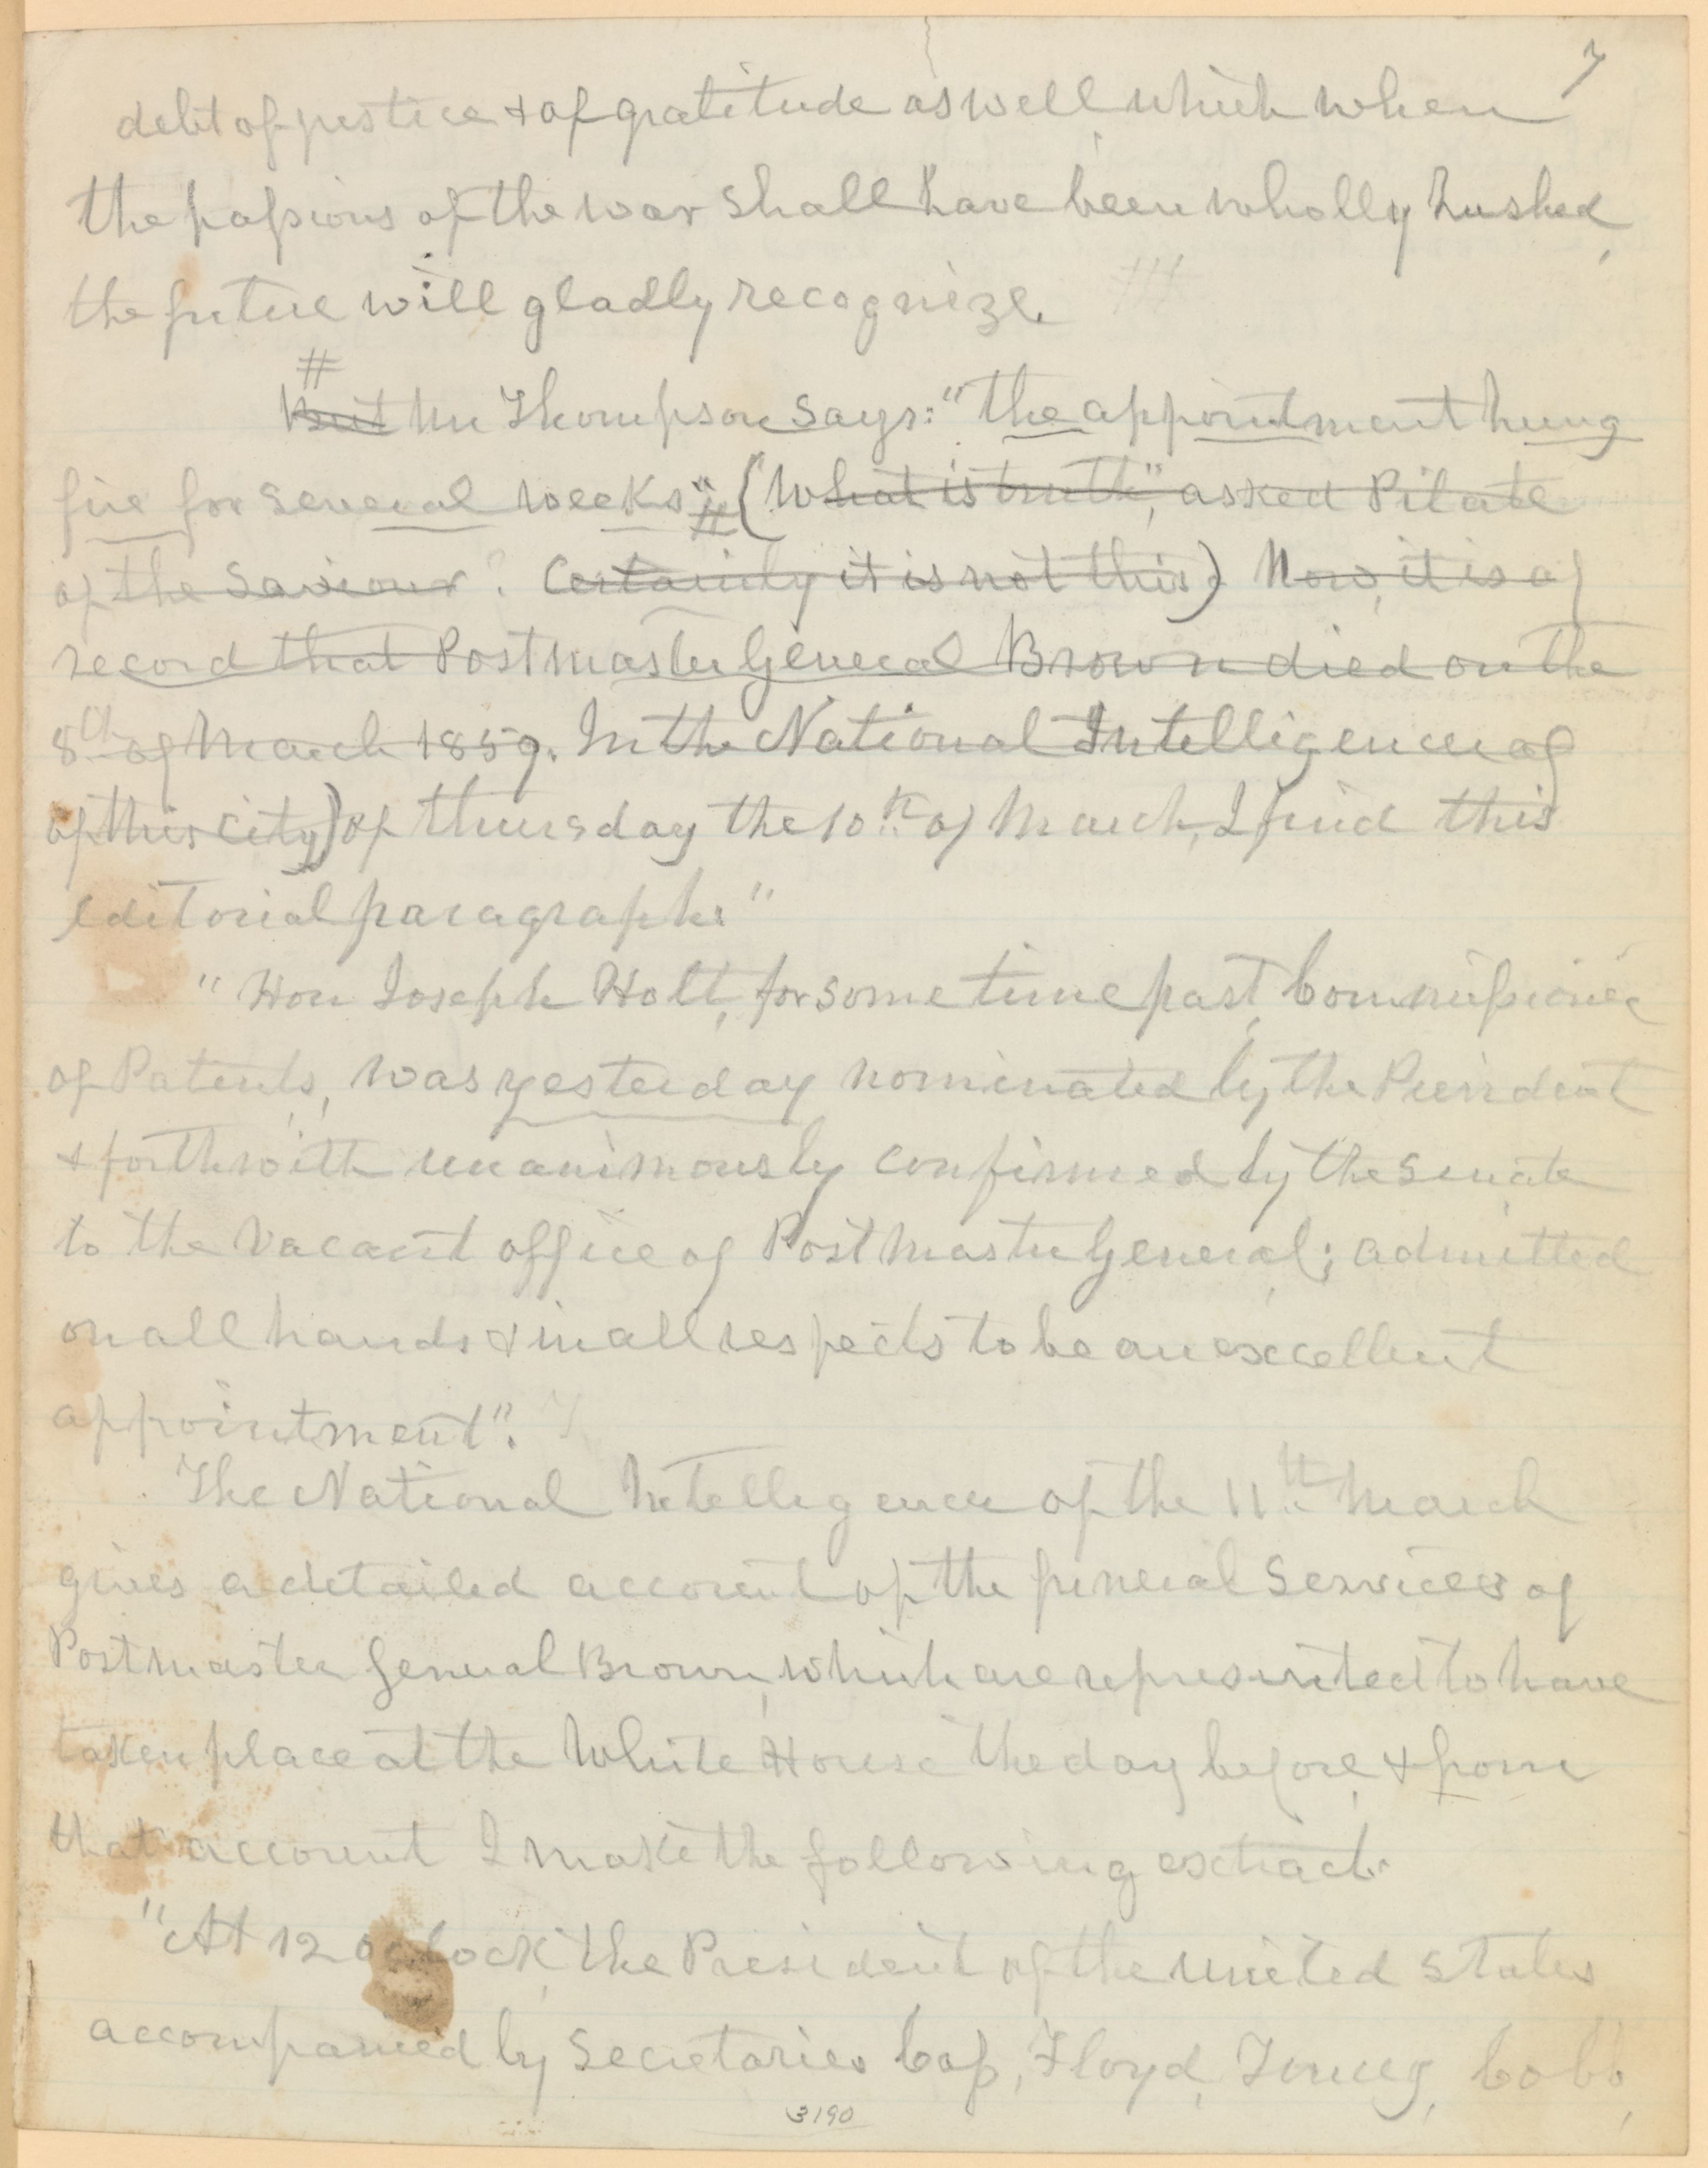 7
debt of justice & of gratitude as well which when
the passions of the war shall have been wholly hushed,
the future will gladly recognize.
#
But Mr Thompson says: "the appointment hung
fire for several weeks" # (What is truth", asked Pilate
of the Saviour? Certainly it is not this) Now, it is of
record that Postmaster General Brown died on the
8th of March 1859. In the National Intelligencer of
of this city) of thursday the 10th of March, I find this
editorial paragraph: "
"Hon Joseph Holt, for some time past, Commissioner
of Patents, was yesterday nominated by the President
& forthwith unanimously confirmed by the Senate
to the vacant office of Postmaster General; admitted
on all hands & in all respects to be an excellent
appointment".
The National Intelligencer of the 11th March
gives a detailed account of the funeral services of
Postmaster General Brown, which are represented to have
taken place at the White House the day before, & from
that account I make the following extract.
"At 12 oclock, the President of the United States
accompanied by Secretaries Cass, Floyd, Toucey, Cobb,
3190